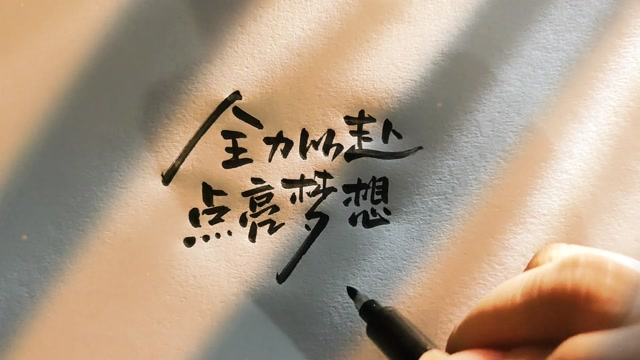 全力以赴
点亮梦想